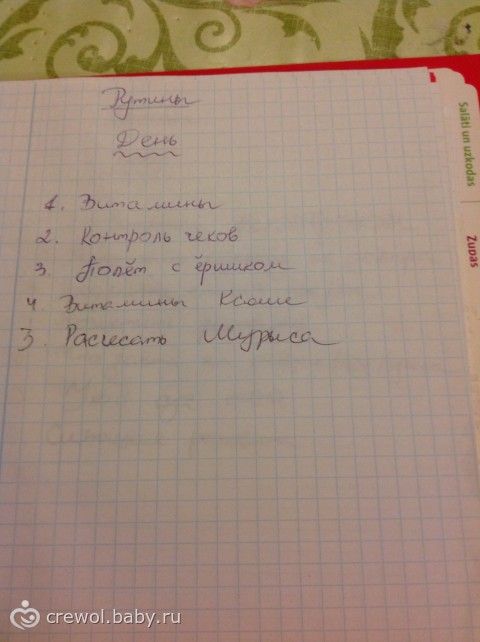 Рутины
День
1. Витамины
2. Контроль чеков
3. Полёт с ёршиком
4. Витамины Ксюше
3. Расчесать Мурыса
Salāti un uzkodas
Zupas
crewol.baby.ru